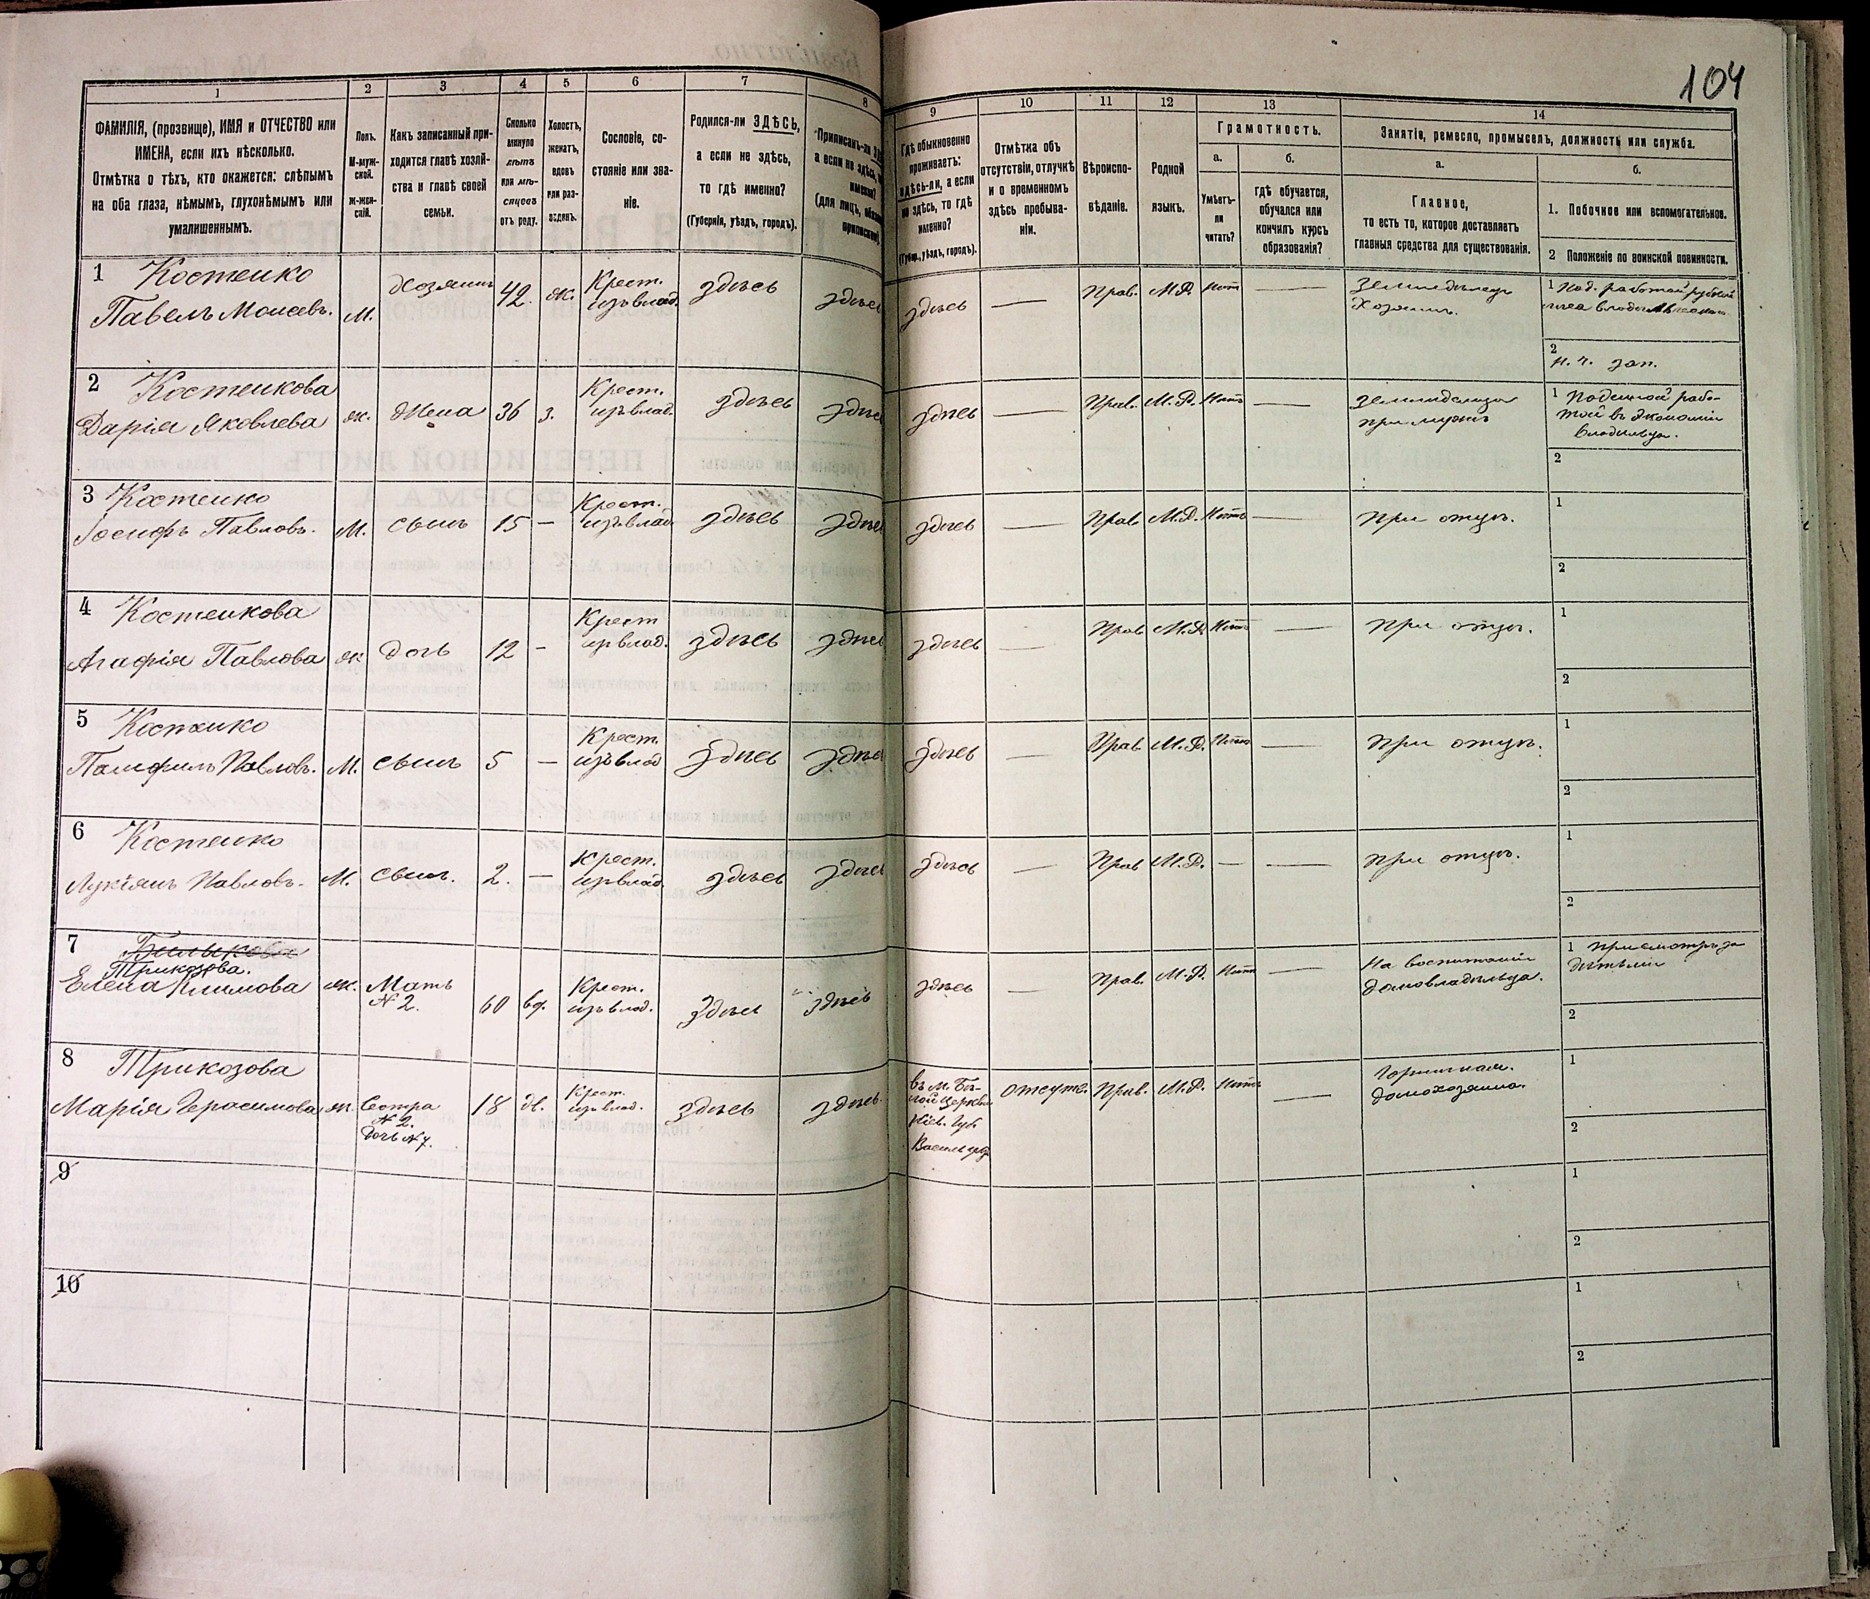 104
1
2
3
4
5
6
7
8
9
10
11
12
13
14
ФАМИЛІЯ, (прозвище), ИМЯ и ОТЧЕСТВО или
ИМЕНА, если ихъ нѣсколько.
Отмѣтка о тѣхъ, кто окажется: слѣпымъ
на оба глаза, нѣмымъ, глухонѣмымъ или
умалишеннымъ.
Полъ.
М-муж-
ской.
Ж-жен-
скій.
Какъ записанный при-
ходится главѣ хозяй-
ства и главѣ своей
семьи.
Сколько
минуло
лѣтъ
или мѣ-
сяцевъ
отъ роду.
Холостъ,
женатъ,
вдовъ
или раз-
веденъ.
Сословіе, со-
стояніе или зва-
ніе.
Родился-ли ЗДѢСЬ,
а если не здѣсь,
то гдѣ именно?
(Губернія, уѣздъ, городъ).
Приписанъ-ли
а если не здѣсь,
(для лицъ,
Гдѣ обыкновенно
проживаетъ:
здѣсь-ли, а если
не здѣсь, то гдѣ
именно?
(Губер., уѣздъ, городъ).
Отмѣтка объ
отсутствіи, отлучкѣ
и о временномъ
здѣсь пребыва-
ніи.
Вѣроиспо-
вѣданіе.
Родной
языкъ.
Грамотность.
а.
б.
Умѣетъ-
ли
читать?
гдѣ обучается,
обучался или
кончилъ курсъ
образованія?
Занятіе, ремесло, промыселъ, должность или служба.
а.
б.
Главное,
то есть то, которое доставляетъ
главныя средства для существованія.
1. Побочное или вспомогательное.
2 Положеніе по воинской повинности.
1 Костенко
Павелъ Моисеевъ. М. Хозяинъ 42. ж. Крест.
изъ влад. здѣсь здѣсь здѣсь — Прав. М.Р. нѣт —
Земледѣлецъ
Хозяинъ.
1 Под. работой
2
н. ч. зап.
2 Костенкова
Дарія Яковлева ж. Жена 36 з. Крест.
изъ влад. здѣсь здѣсь здѣсь — Прав. М.Р. Нѣтъ —
при мужѣ
1 Поденной рабо-
той въ экономіи
владѣльца.
2
3 Костенко
Іосифъ Павловъ. М. сынъ 15 — Крест.
изъ влад здѣсь здѣсь здѣсь — Прав М.Р. Нѣтъ — При отцѣ.
1
2
4 Костенкова
Агафія Павлова ж дочь 12 - Крест
изъ влад. здѣсь здѣсь здѣсь — Прав М.Р. Нѣтъ — При отцѣ.
1
2
5 Костенко
Памфилъ Павловъ. М. сынъ 5 — Крест.
изъ влад здѣсь здѣсь здѣсь — Прав. М.Р. Нѣтъ — При отцѣ.
1
2
6 Костенко
Лукіянъ Павловъ. М. сынъ. 2. — Крест.
изъ влад здѣсь здѣсь здѣсь — Прав М.Р. — — при отцѣ.
1
2
7 Билыкова
Трикозова.
Елена Климова ж. Мать
№ 2. 60 вд. Крест.
изъ влад. здѣсь здѣсь здѣсь — Прав. М.Р. Нѣтъ —
На воспитаніи
домовладѣльца.
1 присмотръ за
дѣтьми
2
8 Трикозова
Марія Герасимова ж. Сестра
№ 2.
дочь № 7. 18 д. Крест.
изъ влад. здѣсь здѣсь.
въ м. Бѣ-
лой Церкви
Кіев. Губ
отсутс. Прав. М.Р. Нѣтъ —
Горничная.
домохозяина.
1
2
9
1
2
10
1
2